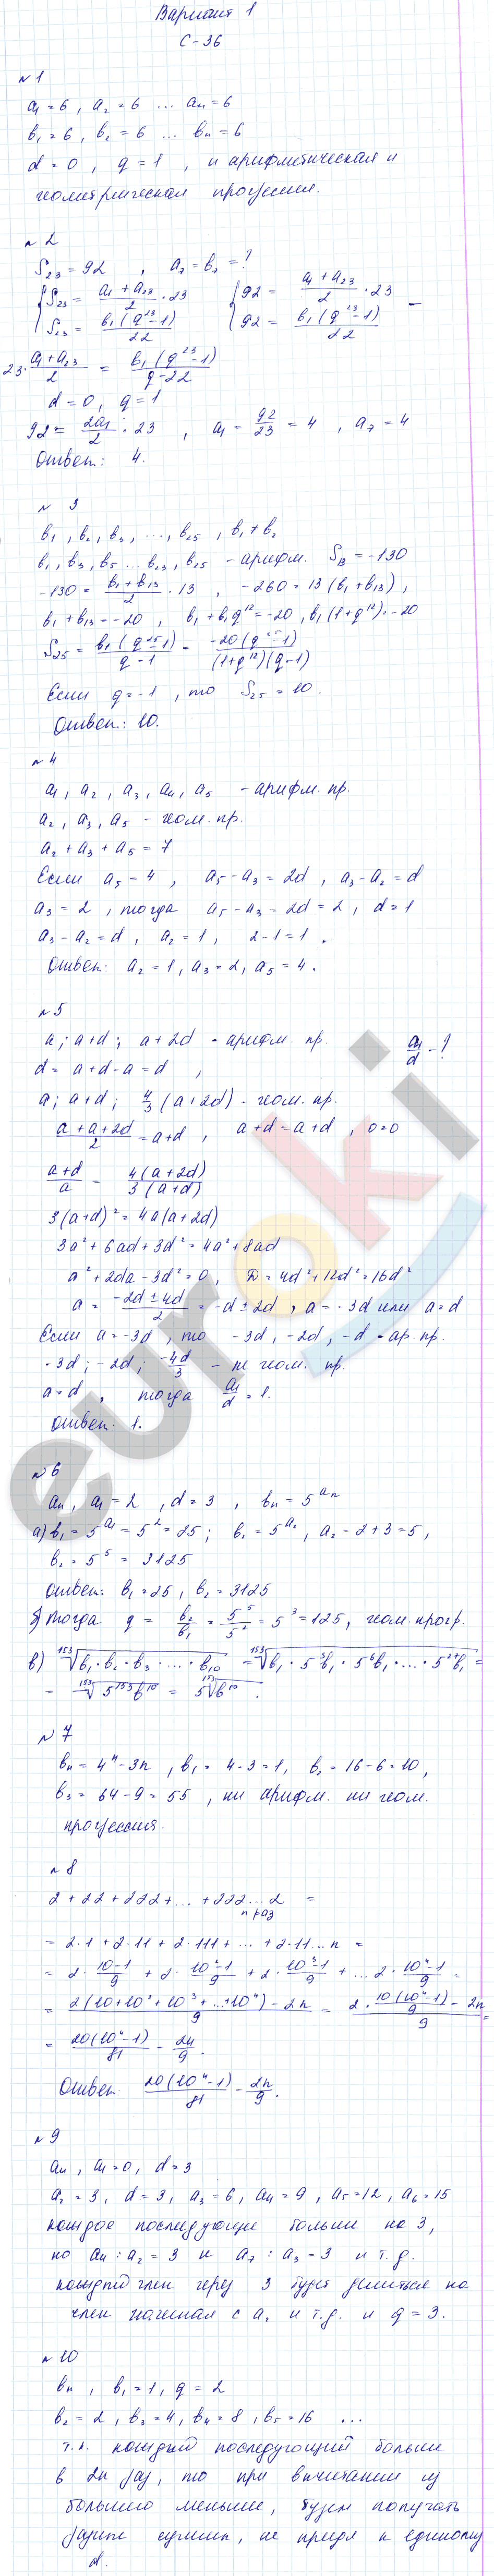 Вариант 1
С-36
№1
a₁ = 6, a₂ = 6 ... aₙ = 6
b₁ = 6, b₂ = 6 ... bₙ = 6
d = 0, q = 1, и арифметическая и
геометрическая прогрессия.
№2
S₂₃ = 92, a₇ = b₇ = ?
{S₂₃ = (a₁ + a₂₃)/2 · 23 {92 = (a₁ + a₂₃)/2 · 23
S₂₃ = b₁(q²³-1)/22 92 = b₁(q²³-1)/22 -
23 · (a₁ + a₂₃)/2 = b₁(q²³-1)/(q-22)
d = 0, q = 1
92 = 2a₁/2 · 23, a₁ = 92/23 = 4, a₇ = 4
Ответ: 4.
№ 3
b₁, b₂, b₃, ..., b₂₅, b₁ ≠ b₂
b₁, b₃, b₅ ... b₂₃, b₂₅ - арифм. S₁₃ = -130
-130 = (b₁ + b₁₃)/2 · 13, -260 = 13(b₁ + b₁₃),
b₁ + b₁₃ = -20, b₁ + b₁q¹² = -20, b₁(1+q¹²) = -20
S₂₅ = b₁(q²⁵-1)/(q-1) = -20(q²⁵-1)/((1+q¹²)(q-1))
Если q = -1, то S₂₅ = 10.
Ответ: 10.
№4
a₁, a₂, a₃, a₄, a₅ - арифм. пр.
a₂, a₃, a₅ - геом. пр.
a₂ + a₃ + a₅ = 7
Если a₅ = 4, a₅ - a₃ = 2d, a₃ - a₂ = d
a₃ = 2, тогда a₅ - a₃ = 2d = 2, d = 1
a₃ - a₂ = d, a₂ = 1, 2 - 1 = 1.
Ответ: a₂ = 1, a₃ = 2, a₅ = 4.
№5
a; a+d; a+2d - арифм. пр. a₁/d - ?
d = a + d - a = d,
a; a+d; 4/3 (a+2d) - геом. пр.
(a + a + 2d)/2 = a+d, a+d = a+d, 0=0
(a+d)/a = 4(a+2d)/3(a+d)
3(a+d)² = 4a(a+2d)
3a² + 6ad + 3d² = 4a² + 8ad
a² + 2da - 3d² = 0, D = 4d² + 12d² = 16d²
a = (-2d ± 4d)/2 = -d ± 2d, a = -3d или a = d
Если a = -3d, то -3d, -2d, -d - ар. пр.
-3d; -2d; -4d/3 - не геом. пр.
a = d, тогда a₁/d = 1.
Ответ: 1.
№6
aₙ, a₁ = 2, d = 3, bₙ = 5^aₙ
а) b₁ = 5^a₁ = 5² = 25; b₂ = 5^a₂, a₂ = 2 + 3 = 5,
b₂ = 5⁵ = 3125
Ответ: b₁ = 25, b₂ = 3125
б) Тогда q = b₂/b₁ = 5⁵/5² = 5³ = 125, геом. прогр.
в) ¹⁵³√(b₁ · b₂ · b₃ · ... · b₁₀) = ¹⁵³√(b₁ · 5³b₁ · 5⁶b₁ · ... · 5²⁷b₁) =
= ¹⁵³√(5¹⁵³b¹⁰) = 5 ¹⁵³√b¹⁰.
№7
bₙ = 4ⁿ - 3n, b₁ = 4-3 = 1, b₂ = 16-6 = 10,
b₃ = 64 - 9 = 55, ни арифм. ни геом.
прогрессия.
№8
2 + 22 + 222 + ... + 222...2 =
n раз
= 2·1 + 2·11 + 2·111 + ... + 2·11...n =
= 2 · (10-1)/9 + 2 · (10²-1)/9 + 2 · (10³-1)/9 + ... 2 · (10ⁿ-1)/9 =
= (2(10+10²+10³+...+10ⁿ) - 2n)/9 = (2 · 10(10ⁿ-1)/9 - 2n)/9 =
= 20(10ⁿ-1)/81 - 2n/9.
Ответ: 20(10ⁿ-1)/81 - 2n/9.
№9
aₙ, a₁ = 0, d = 3
a₂ = 3, d = 3, a₃ = 6, a₄ = 9, a₅ = 12, a₆ = 15
каждое последующие больше на 3,
но a₄ : a₂ = 3 и a₇ : a₃ = 3 и т.д.
каждый член через 3 будет делиться на
член начиная с a₂ и т.д. и q = 3.
№10
bₙ, b₁ = 1, q = 2
b₂ = 2, b₃ = 4, b₄ = 8, b₅ = 16 ...
т.к. каждый последующий больше
в 2n раз, то при вычитании из
большего меньшее, будем получать
разные суммы, не придя к единому
d.
euroki